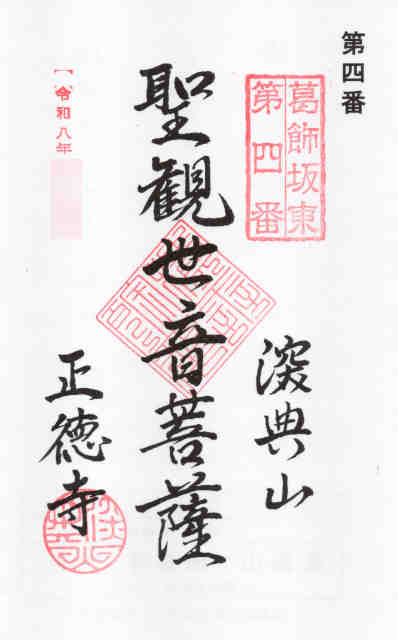 第四番
葛飾坂東
第四番
深典山
聖観世音菩薩
正徳寺
令和八年